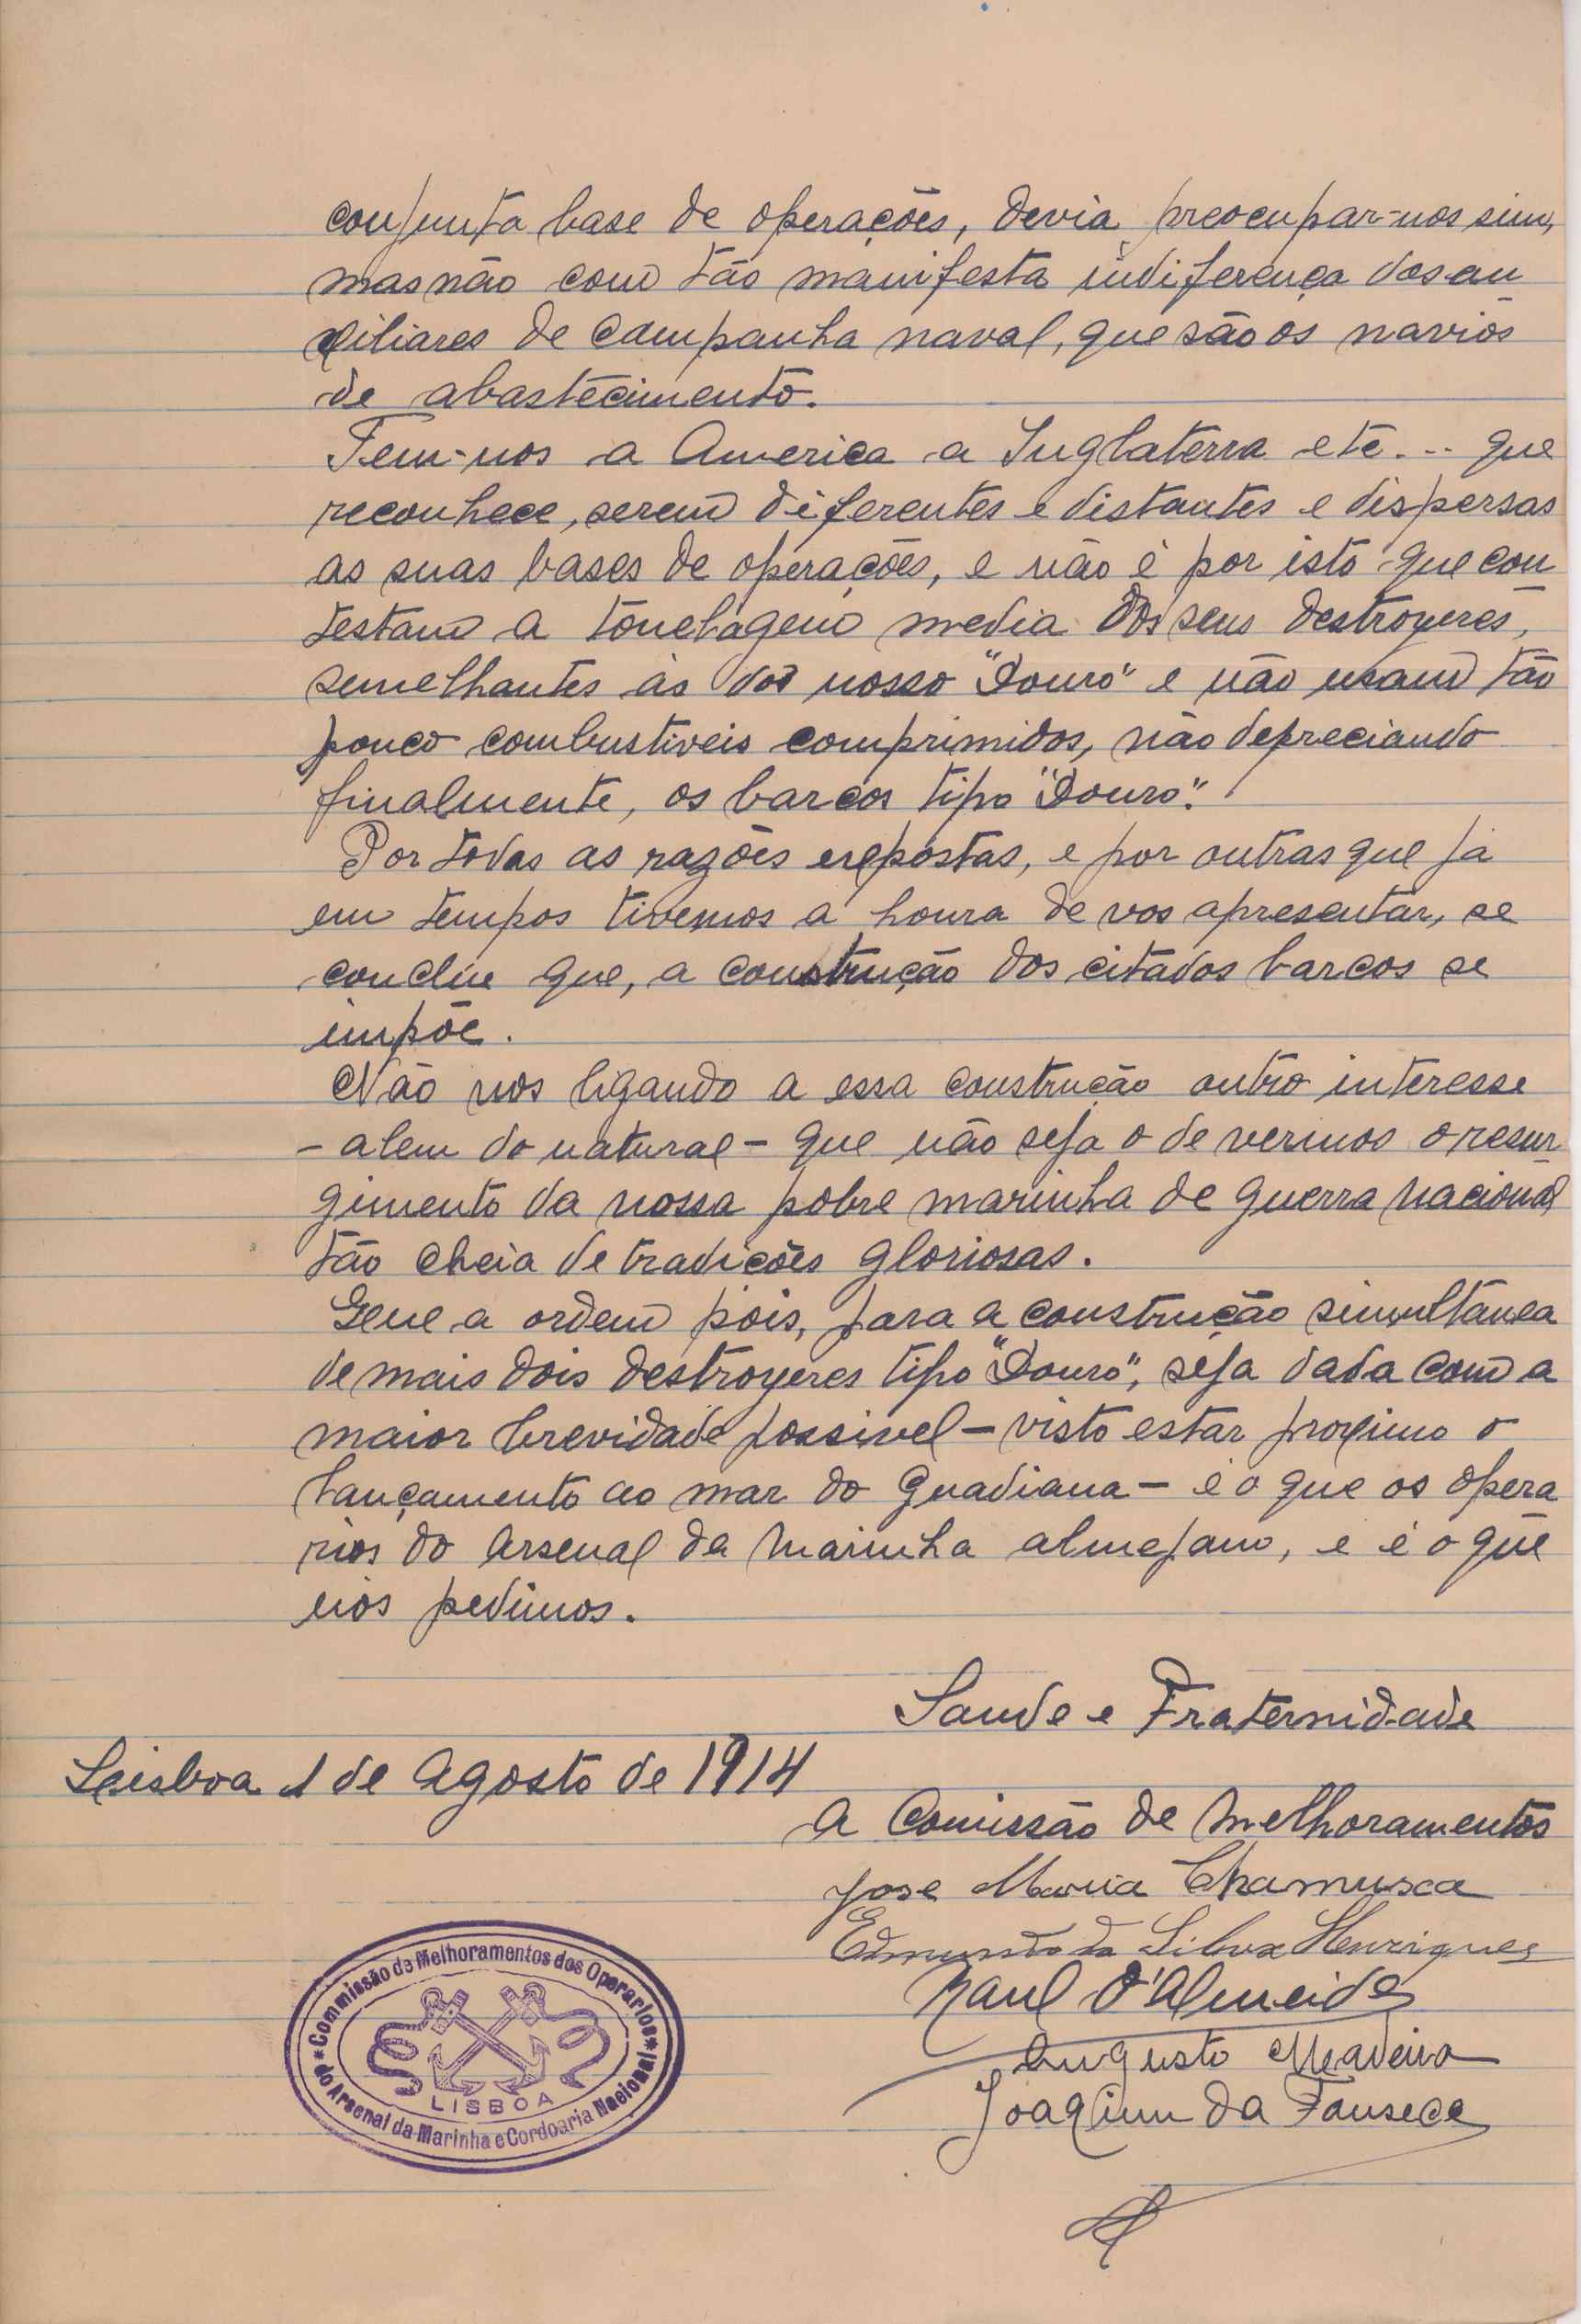 conjunta base de operações, devia preocupar-nos sim,
mas não com tão manifesta indiferença dos au
xiliares de campanha naval, que são os navios
de abastecimento.
Tem-nos a America a Inglaterra etc... que
reconhece, serem diferentes e distantes e dispersas
as suas bases de operações, e não é por isto que con
testam a tonelagem media dos seus destroyeres,
semelhantes ás dos nosso "Douro" e não usam tão
pouco combustiveis comprimidos, não depreciando
finalmente, os barcos tipo "Douro".
Por todas as razões expostas, e por outras que já
em tempos tivemos a honra de vos apresentar, se
conclue que, a construção dos citados barcos se
impõe.
Não nos ligando a essa construcão outro interesse
- alem do natural - que não seja o de vermos o resur
gimento da nossa pobre marinha de guerra nacional
tão cheia de tradicões gloriosas.
Que a ordem pois, para a construcão simultânea
de mais dois destroyeres tipo "Douro", seja dada com a
maior brevidade possivel - visto estar proximo o
lançamento ao mar do Guadiana - é o que os opera
rios do Arsenal da Marinha almejam, e é o que
nós pedimos.
Saude e Fraternidade
Lisboa 1 de Agosto de 1914
A Comissão de Melhoramentos
Jose Maria Chamusca
Edmundo da Silva Henriques
Raul d'Almeida
Augusto Madeira
Joaquim da Fonseca
Commissão de Melhoramentos dos Operarios
do Arsenal da Marinha e Cordoaria Nacional
LISBOA